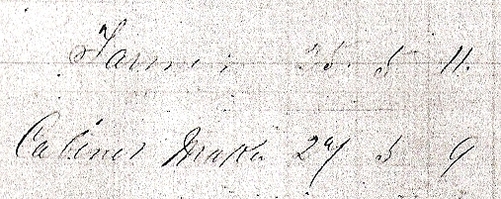 Farmer 25 5 11
Cabinet Maker 29 5 9